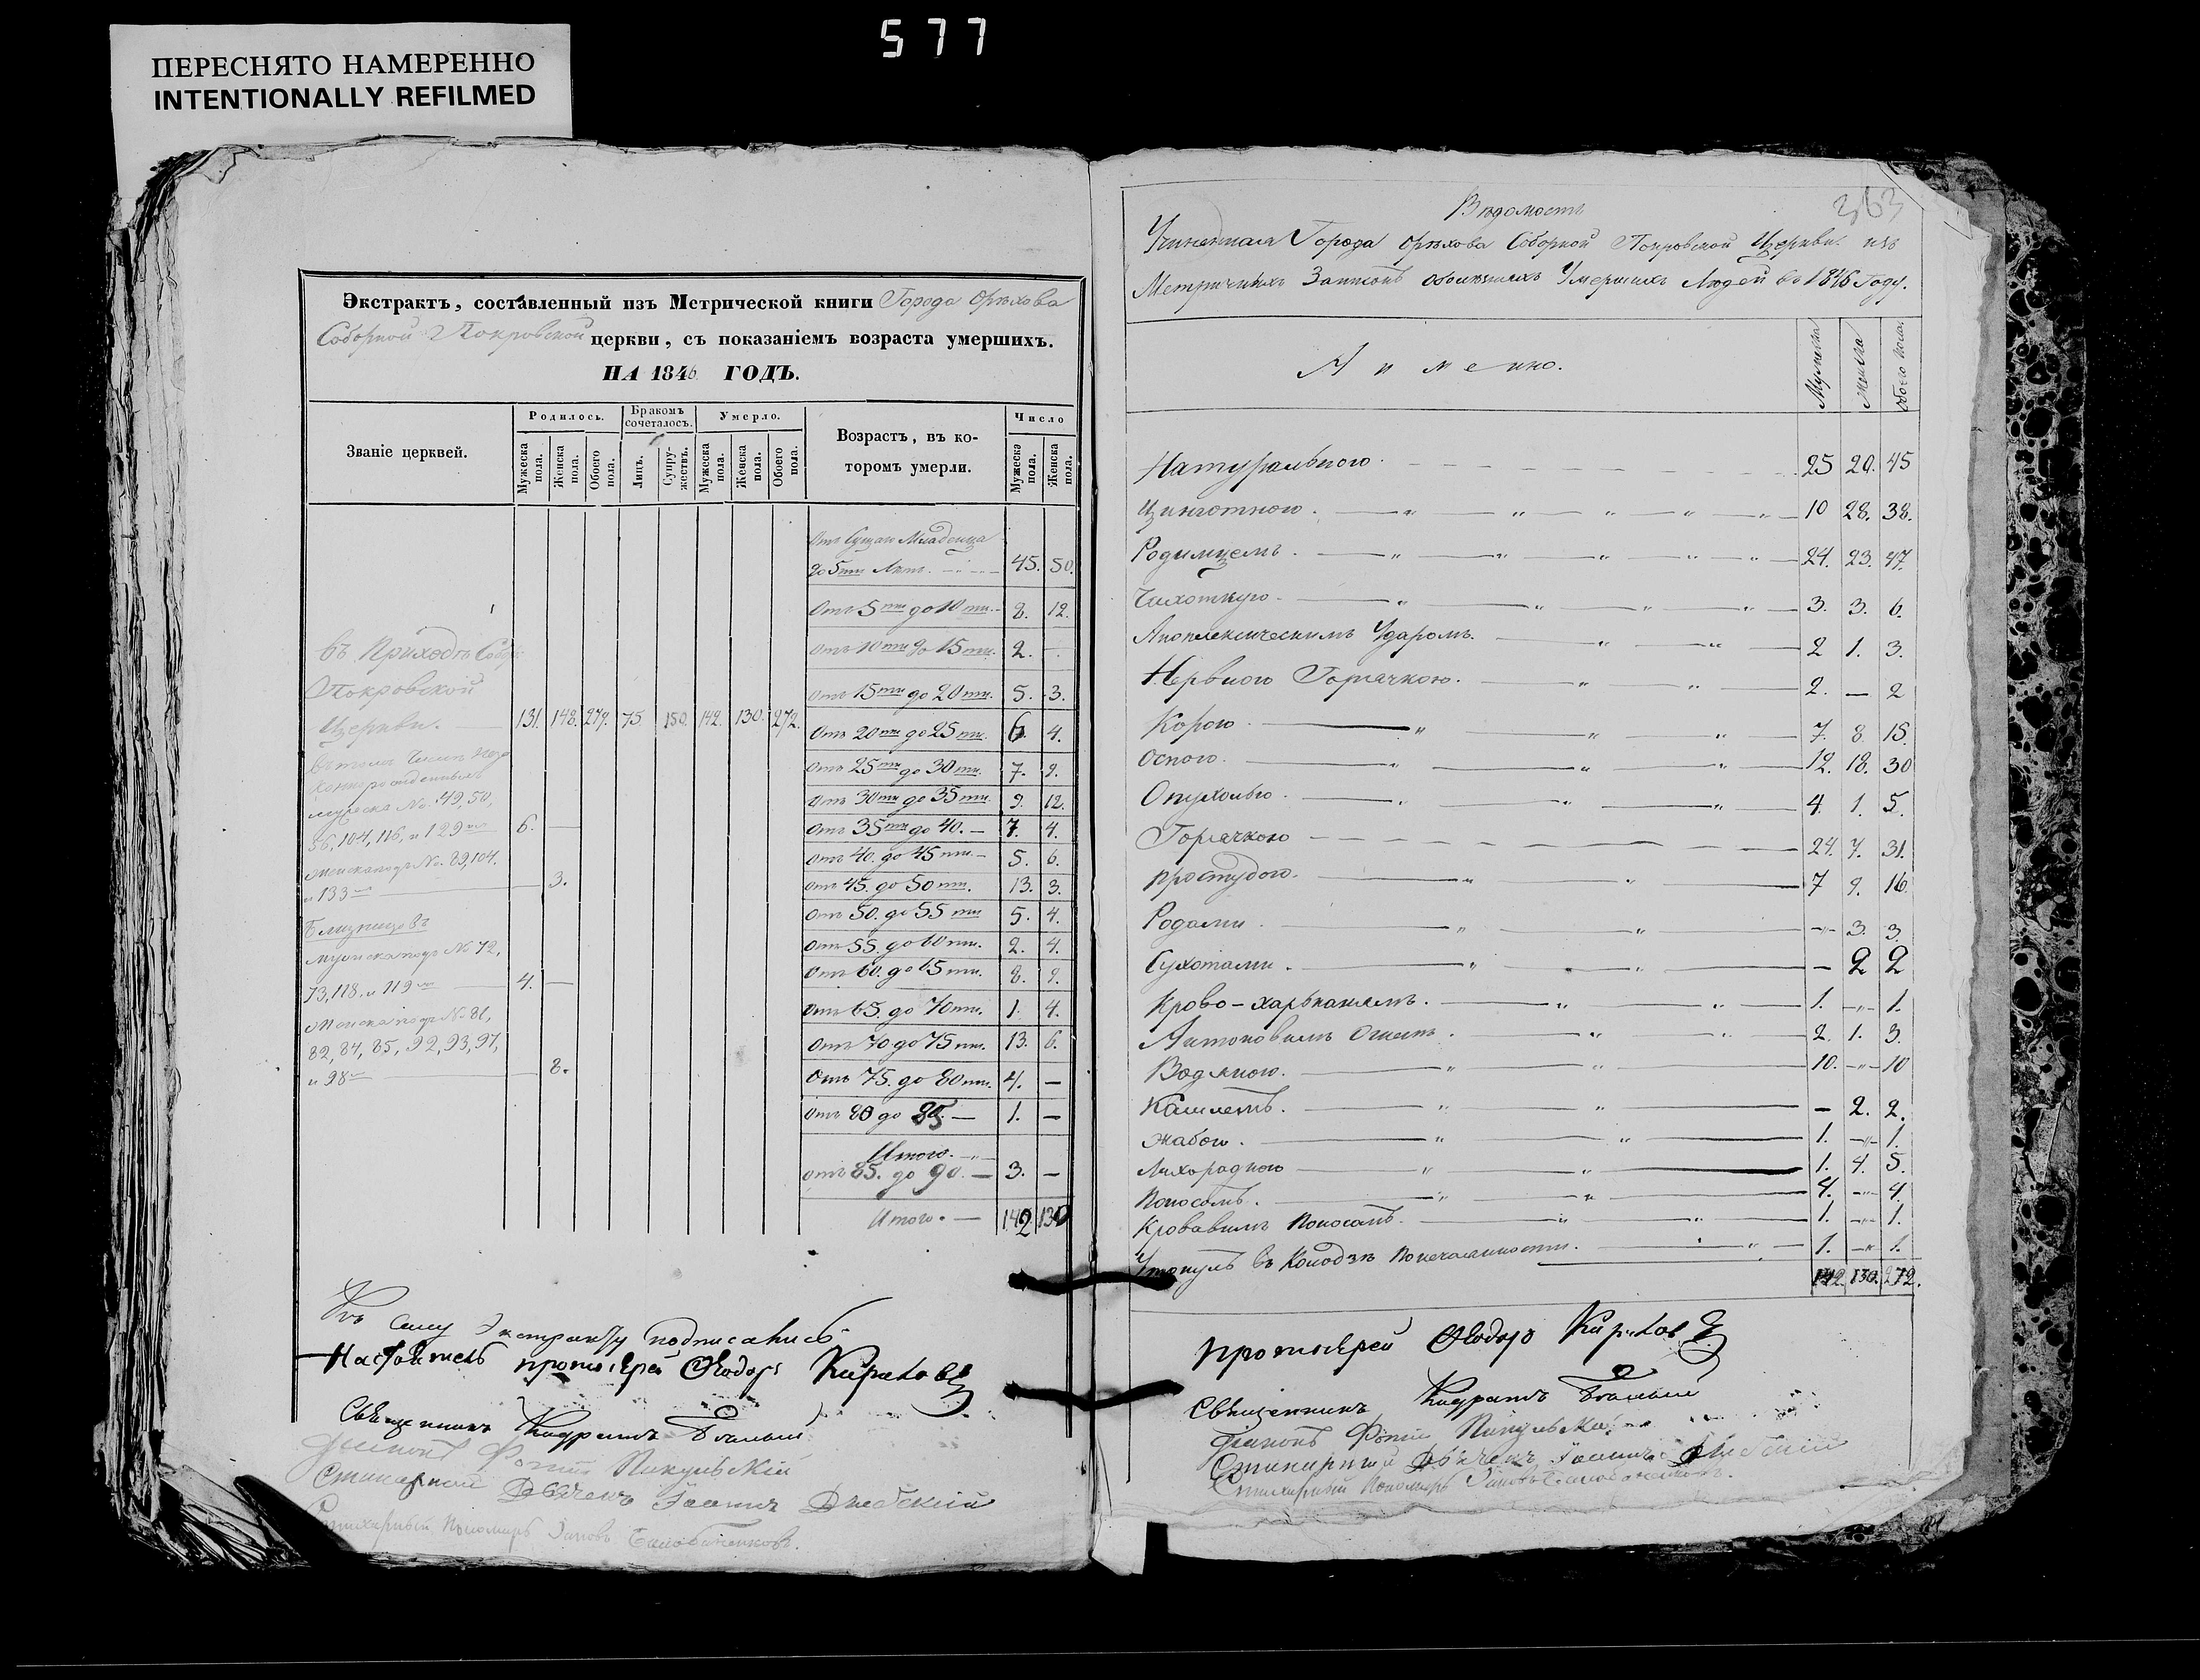 577
ПЕРЕСНЯТО НАМЕРЕННО
INTENTIONALLY REFILMED
Экстрактъ, составленный изъ Метрической книги Города Орѣхова
Соборной Покровской церкви, съ показаніемъ возраста умершихъ.
НА 1846 ГОДЪ.
Званіе церквей.
Родилось.
Бракомъ сочеталось.
Умерло.
Возрастъ, въ которомъ умерли.
Число
Мужеска пола.
Женска пола.
Обоего пола.
Лицъ.
Супружествъ.
Мужеска пола.
Женска пола.
Обоего пола.
Мужеска пола.
Женска пола.
въ Приходѣ Собор
Покровской
Церкви. 131. 148. 279. 75. 150. 142. 130. 272.
мужеска No. 49, 50,
56, 104, 116, и 129 6. —
No. 89, 104.
и 133 — 3.
Близнецовъ
No 72,
73, 118. и 119 4. —
No 81,
82, 84, 85, 92, 93, 97,
и 98 — 8.
Младенца
до 5ти Лѣтъ. 45. 50.
Отъ 5ти до 10ти. 8. 12.
Отъ 10ти до 15ти. 2. —
Отъ 15ти до 20ти. 5. 3.
Отъ 20ти до 25ти. 6. 4.
Отъ 25ти до 30ти. 7. 9.
Отъ 30ти до 35ти. 9. 12.
Отъ 35ти до 40. — 7. 4.
Отъ 40. до 45ти. — 5. 6.
Отъ 45. до 50ти. 13. 3.
Отъ 50. до 55ти 5. 4.
Отъ 55. до 60ти. 2. 4.
Отъ 60. до 65ти. 8. 9.
Отъ 65. до 70ти. 1. 4.
Отъ 70 до 75ти. 13. 6.
Отъ 75. до 80ти. 4. —
Отъ 80 до 85. — 1. —
Итого. —
отъ 85. до 90. — 3. —
Итого. — 142 130
Къ сему Экстракту подписались:
Настоятель протоіерей Ѳеодоръ Кириковъ
Священникъ Кодратъ
Діаконъ Фотій Пикульскій
Стихарный Дьячекъ Іоаннъ
Стихарный Пономарь
363
Вѣдомость
Учиненная Города Орѣхова Соборной Покровской Церкви. изъ
Метричныхъ Записокъ Умершихъ Людей въ 1846 Году.
А именно.
Мужеска
Женска
обоего пола.
Натуральною. 25 20. 45
Цинготною. 10 28. 38.
Родимцемъ. 24. 23. 47.
Чихоткую. 3. 3. 6.
Апоплексическимъ Ударомъ. 2 1. 3.
Нервною Горячкою. 2. — 2
Корою. 7. 8. 15.
Оспою. 12. 18. 30
Опухолью. 4. 1. 5.
Горячкою 24. 7. 31.
простудою. 7 9. 16.
Родами. — 3. 3.
Сухотами. — 2 2
Крово-харканіемъ. 1. — 1.
Антоновымъ Огнемъ. 2. 1. 3.
Водяною. 10. — 10
Кашлемъ. — 2. 2.
жабою. 1. — 1.
Лихорадкою 1. 4. 5.
Поносомъ. 4. — 4.
Кровавымъ Поносомъ. 1. — 1.
Утонулъ въ Колодзѣ 1. — 1.
142. 130. 272.
протоіерей Ѳеодоръ Кириковъ
Священникъ Кодратъ
Діаконъ Фотій Пикульскій
Стихарный Дьячекъ Іоаннъ
Стихарный Пономарь